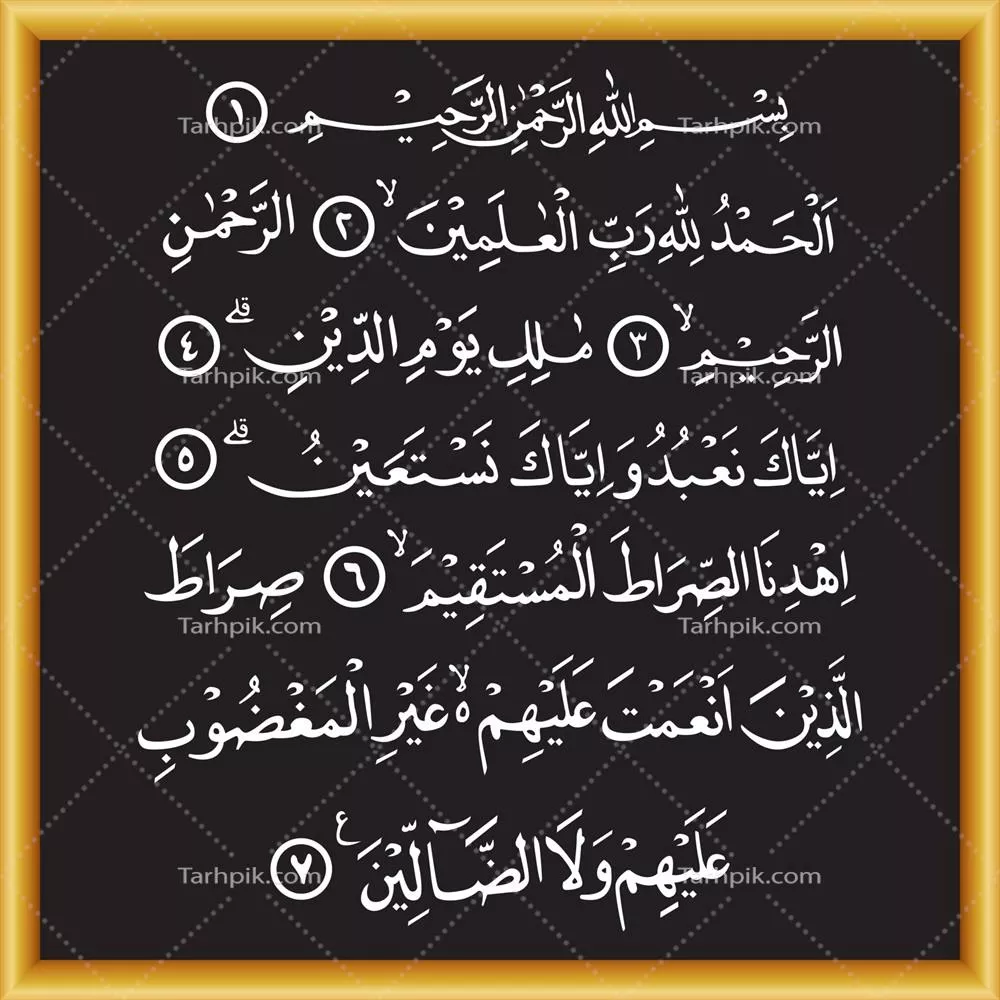 بِسْمِ اللّٰهِ الرَّحْمٰنِ الرَّحِيْمِ ١
اَلْحَمْدُ لِلّٰهِ رَبِّ الْعٰلَمِيْنَ ۙ ٢ الرَّحْمٰنِ
الرَّحِيْمِ ۙ ٣ مٰلِكِ يَوْمِ الدِّيْنِ ۗ ٤
اِيَّاكَ نَعْبُدُ وَاِيَّاكَ نَسْتَعَيْنُ ۗ ٥
اِهْدِنَا الصِّرَاطَ الْمُسْتَقِيْمَ ۙ ٦ صِرَاطَ
الَّذِيْنَ اَنْعَمْتَ عَلَيْهِمْ ۙ ە غَيْرِ الْمَغْضُوْبِ
عَلَيْهِمْ وَلَا الضَّاۤلِّيْنَ ع ٧
Tarhpik.com Tarhpik.com
Tarhpik.com Tarhpik.com
Tarhpik.com Tarhpik.com
Tarhpik.com Tarhpik.com